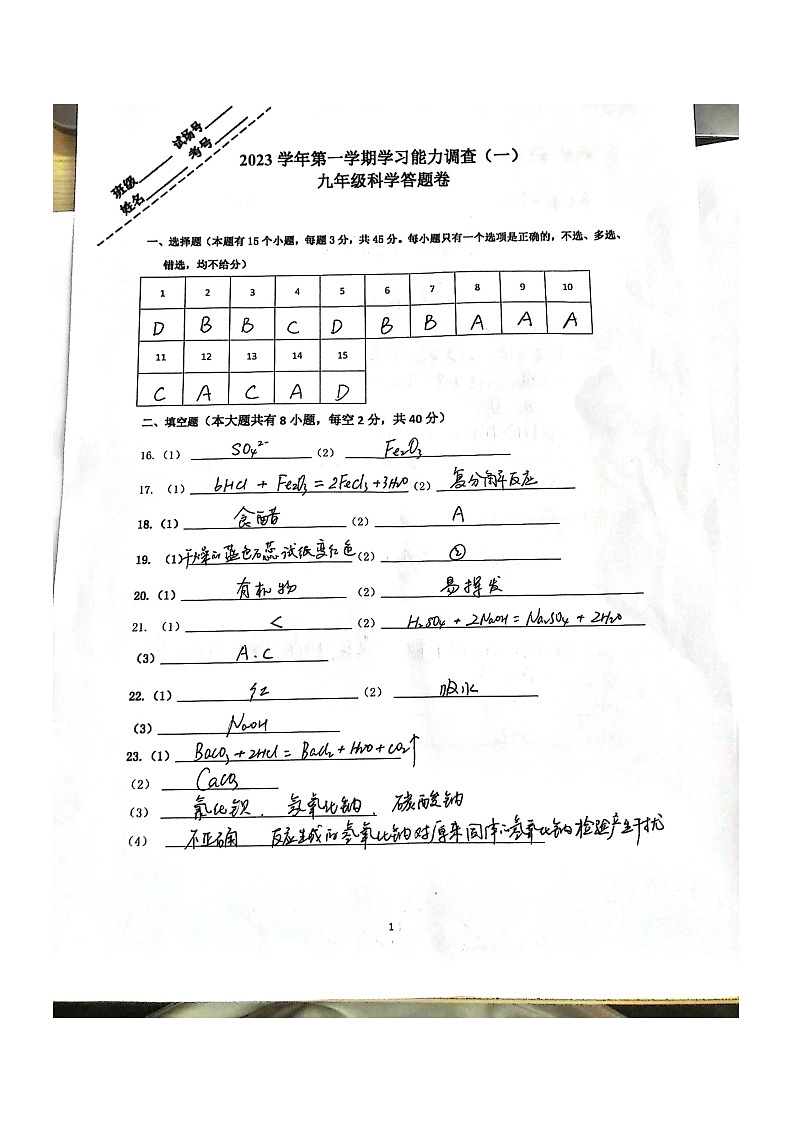 班级______ 试场号______
姓名______ 考号______
2023 学年第一学期学习能力调查（一）
九年级科学答题卷
一、选择题（本题有 15 个小题，每题 3 分，共 45 分。每小题只有一个选项是正确的，不选、多选、
错选，均不给分）
1 2 3 4 5 6 7 8 9 10
D B B C D B B A A A
11 12 13 14 15
C A C A D
二、填空题（本大题共有 8 小题，每空 2 分，共 40 分）
16.（1） SO₄²⁻ （2） Fe₂O₃
17. （1） 6HCl + Fe₂O₃ = 2FeCl₃ + 3H₂O （2） 复分解反应
18.（1） 食醋 （2） A
19. （1）干燥的蓝色石蕊试纸变红色 （2） ②
20.（1） 有机物 （2） 易挥发
21. （1） < （2） H₂SO₄ + 2NaOH = Na₂SO₄ + 2H₂O
（3） A.C
22.（1） 红 （2） 吸水
（3） NaOH
23.（1） BaCO₃ + 2HCl = BaCl₂ + H₂O + CO₂↑
（2） CaCO₃
（3） 氯化钡．氢氧化钠．碳酸钠
（4） 不正确 反应生成的氢氧化钠对原来固体的氢氧化钠检验产生干扰
1